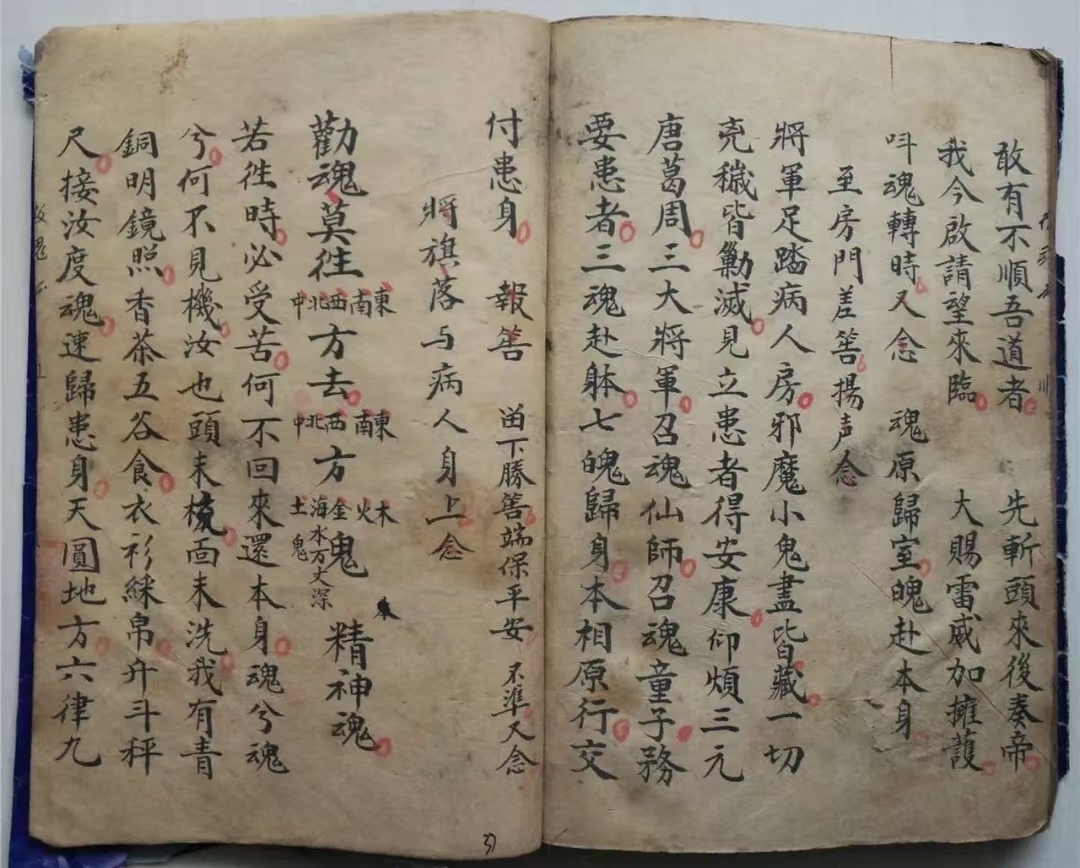 敢有不順吾道者 先斬頭來後奏帝
我今啟請望來臨 大賜雷威加擁護
呌魂轉時又念 魂原歸室魄赴本身
至房門差筶揚声念
將軍足踏病人房邪魔小鬼盡皆藏一切
兇穢皆勦滅見立患者得安康仰煩三元
唐葛周三大將軍召魂仙師召魂童子務
要患者三魂赴躰七魄歸身本相原行交
付患身 報筶 畄下勝筶端保平安 不準又念
將旗落与病人身上念
勸魂莫徃東南西北中方去東南西北中方木火金海水万丈深土鬼鬼 精神魂
若徃時必受苦何不回來還本身魂兮魂
兮何不見機汝也頭未梳面未洗我有青
銅明鏡照香茶五谷食衣衫綵帛升斗秤
尺接汝度魂速歸患身天圓地方六律九
37